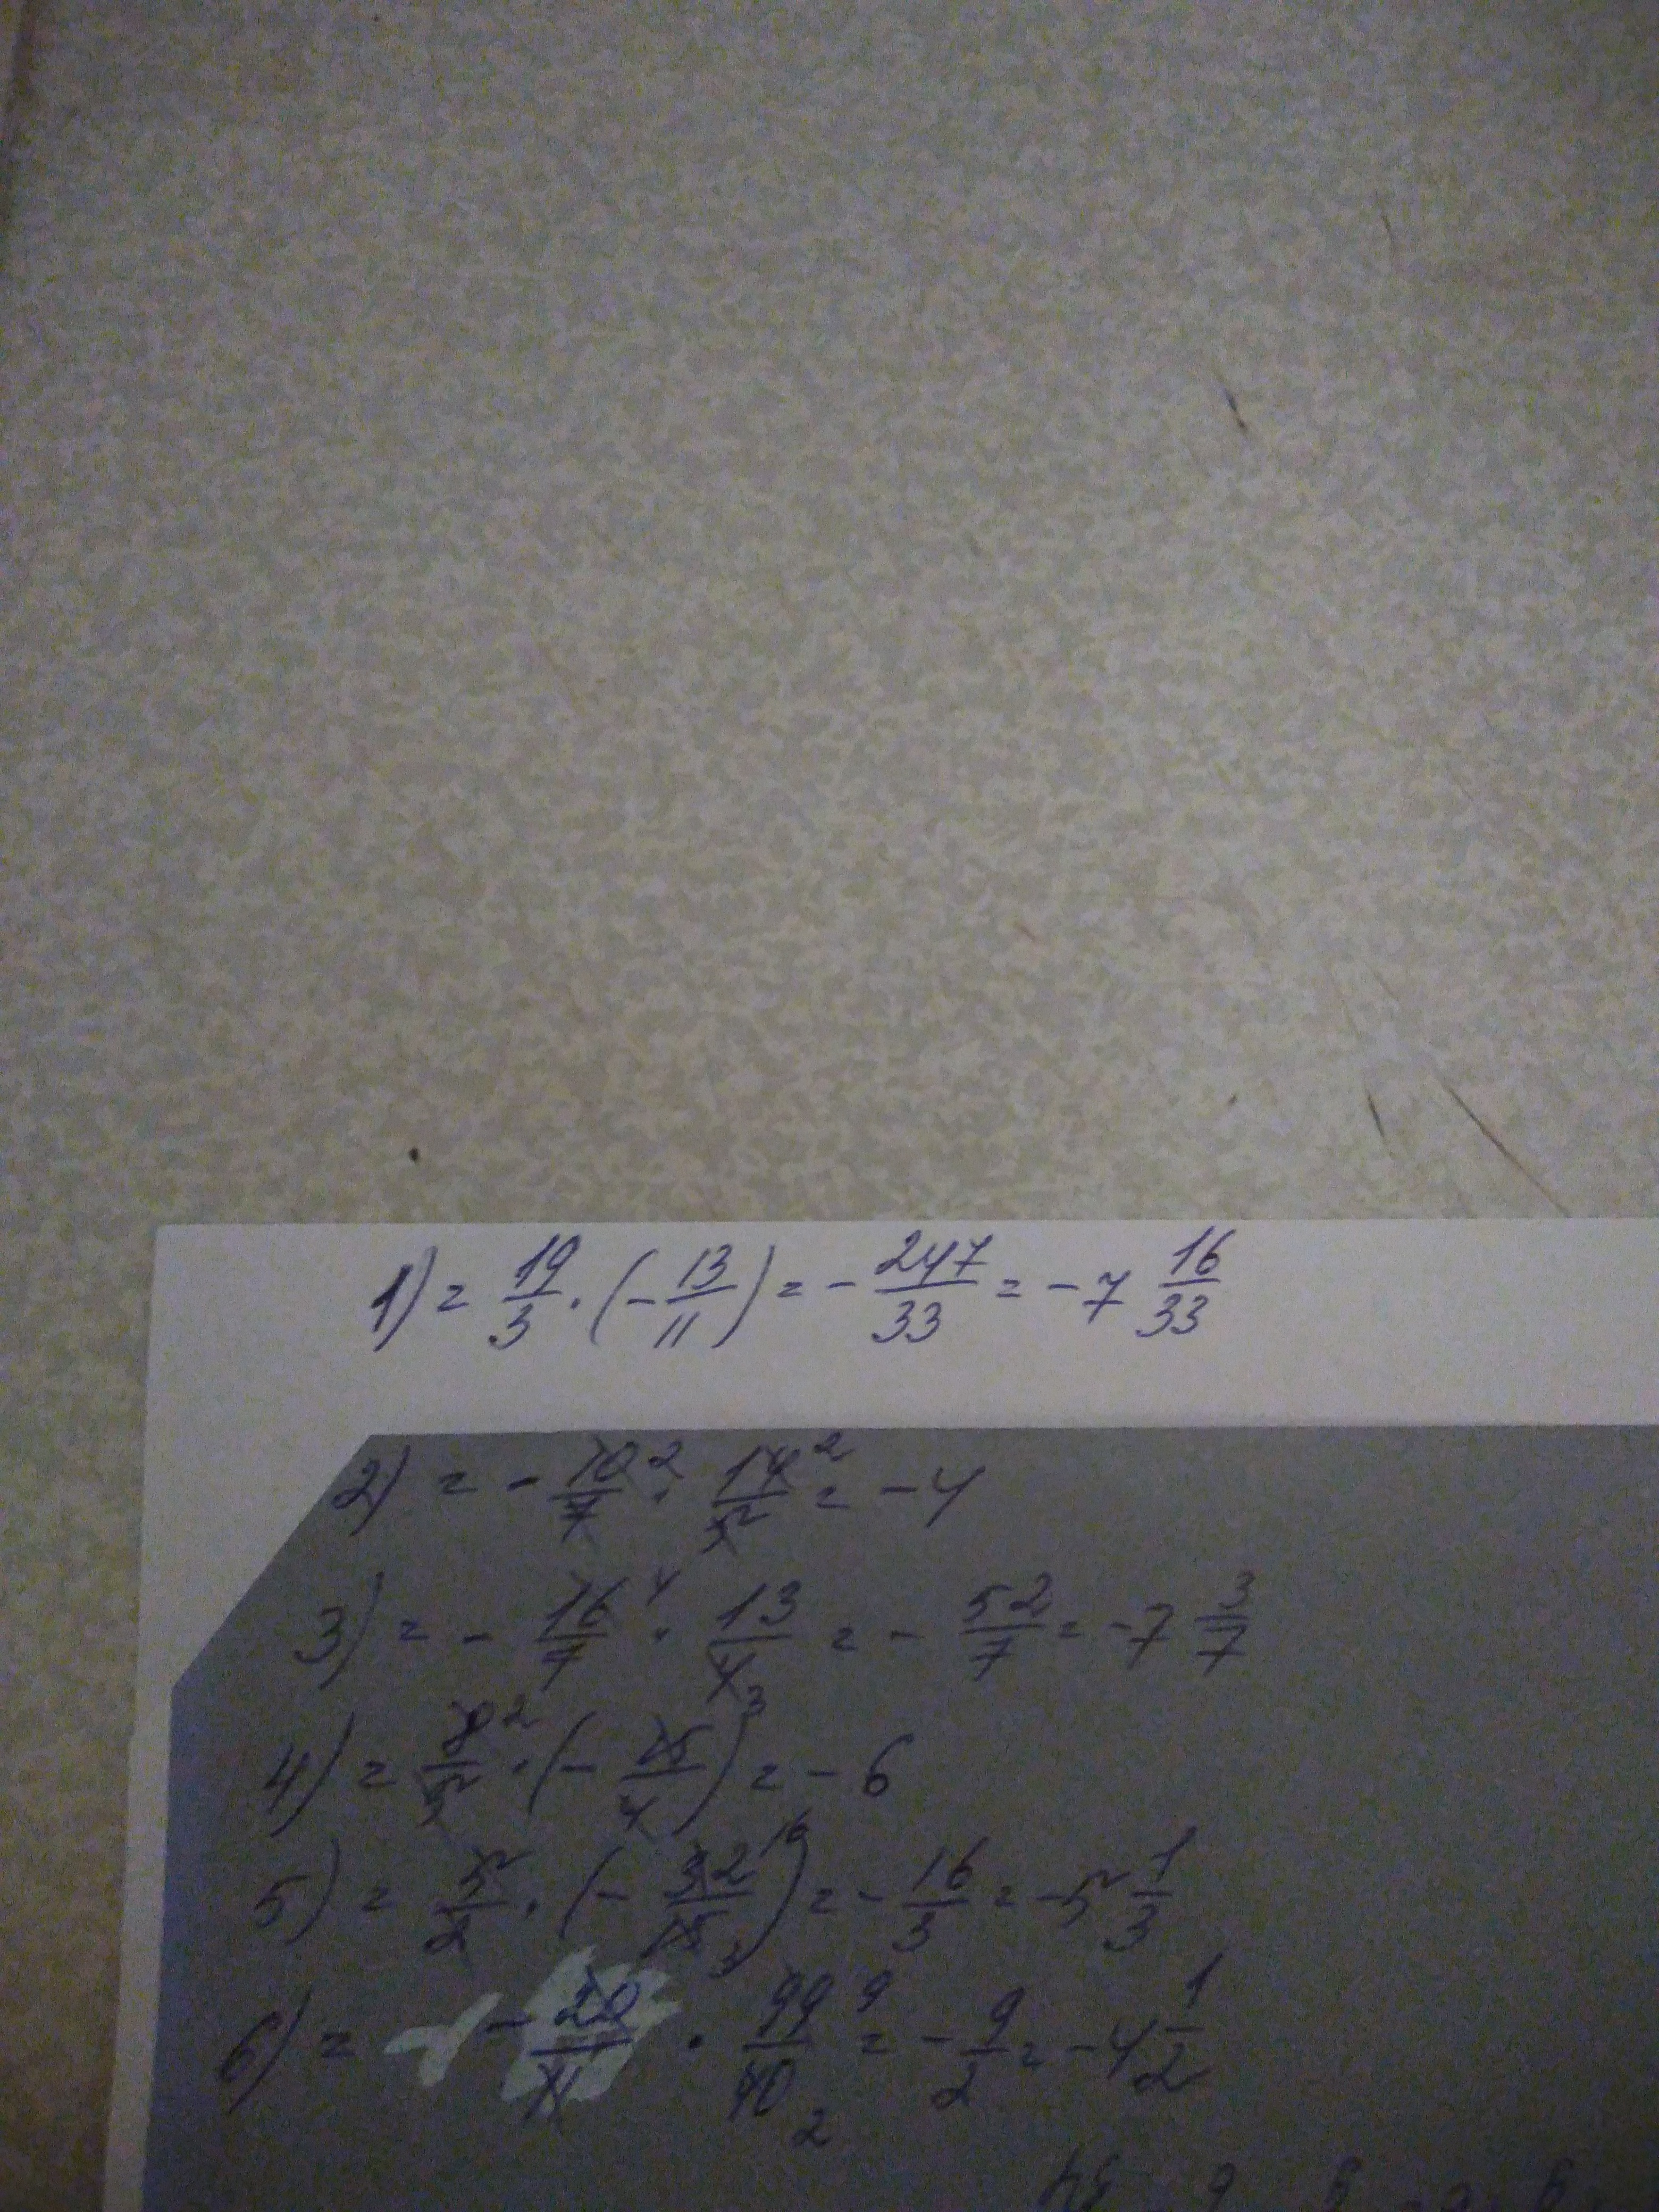 1) = 19/3 · (- 13/11) = - 247/33 = - 7 16/33
2) = - 10/7 2 · 14/5 2 = - 4
3) = - 16/7 4 · 13/4 = - 52/7 = - 7 3/7
4) = 8/5 2 · (- 15/4) 3 = - 6
5) = 5/2 · (- 32/15) 16 3 = - 16/3 = - 5 1/3
6) = - 20/11 · 99/40 9 2 = - 9/2 = - 4 1/2